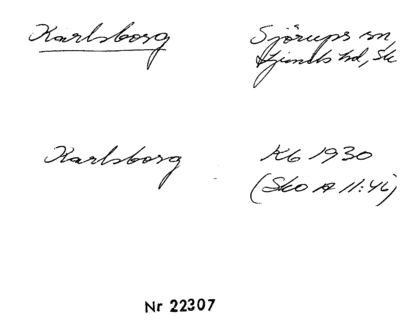 Karlsborg
Sjörups sn,
Ljunits hd, Sk
Karlsborg
Kb 1930
(Sko A 11:46)
Nr 22307